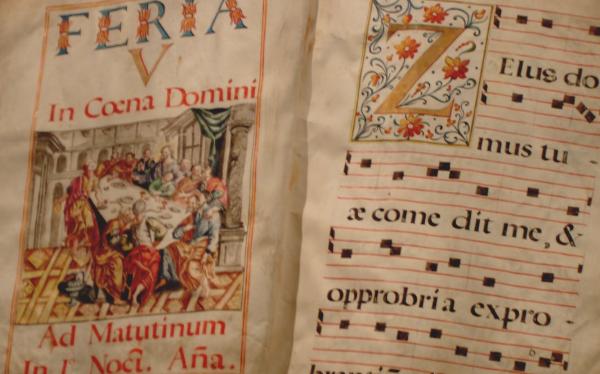 FERIA
V
In Cœna Domini
Ad Matutinum
In I. Noct. Aña.
Zelus do
mus tu
æ come dit me, &
opprobria expro -